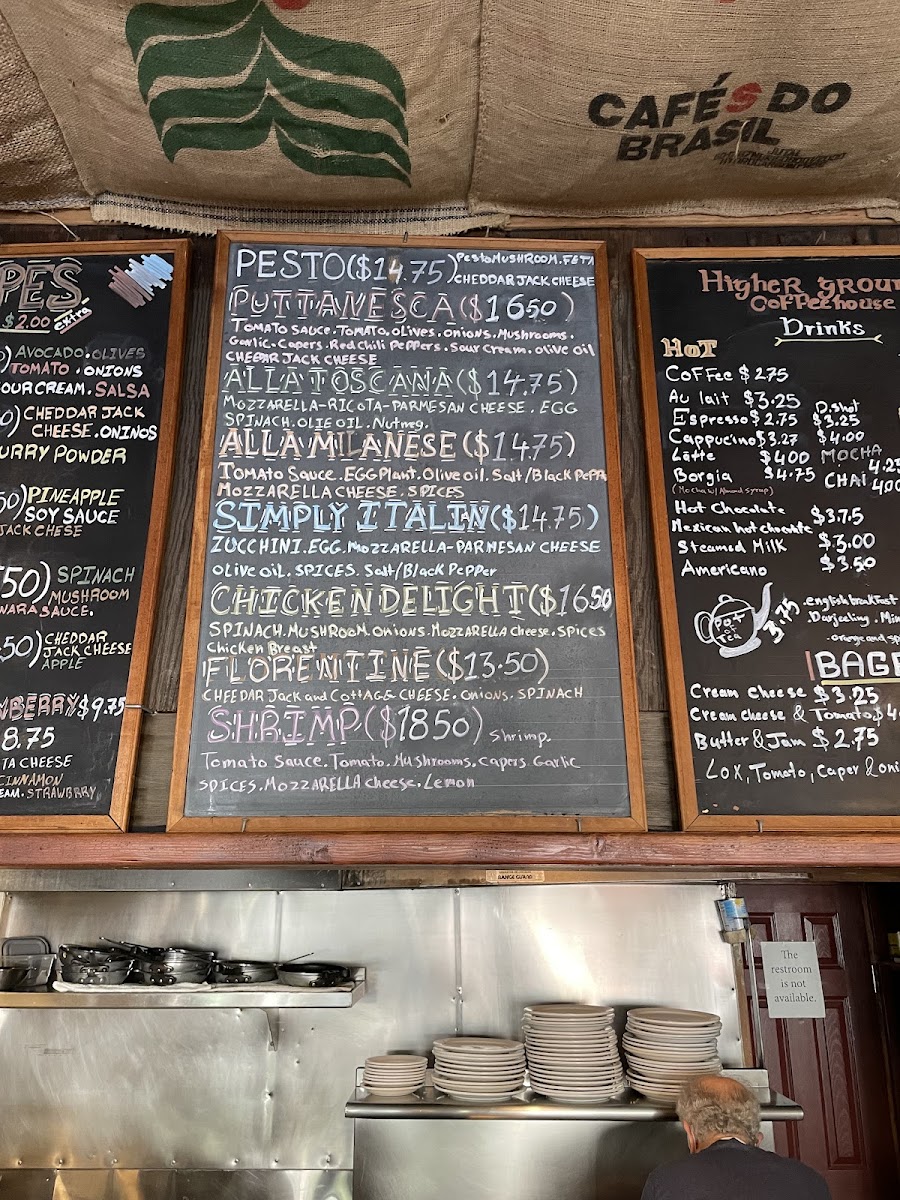 CAFÉS DO
BRASIL
PES
$2.00 extra
AVOCADO.OLIVES
TOMATO.ONIONS
OUR CREAM.SALSA
CHEDDAR JACK
CHEESE.ONINOS
URRY POWDER
50) PINEAPPLE
SOY SAUCE
JACK CHESE
50) SPINACH
MUSHROOM
NARA SAUCE.
50) CHEDDAR
JACK CHEESE
APPLE
BERRY $9.75
8.75
TA CHEESE
CINNAMON
EAM.STRAWBRRY
PESTO($14.75) Pesto MUSHROOM.FETA
CHEDDAR JACK CHEESE
PUTTANESCA($1650)
Tomato Sauce.TOMATO.OLIVES.Onions.Mushrooms.
Garlic.Capers.Red Chili PePPers.Sour Cream.olive oil
CHEDDAR JACK CHEESE
ALLA TOSCANA($14.75)
MOZZARELLA-RICOTA-PARMESAN CHEESE.EGG
SPINACH.OLIE OIL.Nutmeg.
ALLA MILANESE($1475)
Tomato Sauce.EGGPlant.Olive oil.Salt/Black PePPR
MOZZARELLA CHEESE.SPICES
SIMPLY ITALIN($14.75)
ZUCCHINI.EGG.MOZZARELLA-PARMESAN CHEESE
OLIVE OIL.SPICES.Salt/Black PePPer
CHICKEN DELIGHT($1650
SPINACH.MUSHROOM.Onions.MOZZARELLA Cheese.SPices
Chicken Breast
FLORENTINE($13.50)
CHEEDAR Jack and COTTAGE CHEESE.Onions.SPINACH
SHRIMP($1850) Shrimp.
Tomato Sauce.Tomato.Mushrooms.Capers.Garlic
SPICES.MOZZARELLA Cheese.Lemon
Higher grou
Coffeehouse
Drinks
HOT
Coffee $275
Au lait $3.25
D.shot
Espresso $2.75 $3.25
Cappucino $3.27 $4.00
Latte $400 MOCHA 4.25
Borgia $4.75 CHAI 400
(Mocha w/ Almond Syrup)
Hot Chocolate $3.75
Mexican hot chocolate
Steamed Milk $3.00
Americano $3.50
HOT TEA 3.75
english breakfast
.Darjeeling.Min
orange and sp
BAGE
Cream cheese $3.25
Cream cheese & Tomato $4
Butter & Jam $2.75
Lox, Tomato, Caper & oni
RANGE GUARD
The
restroom
is not
available.